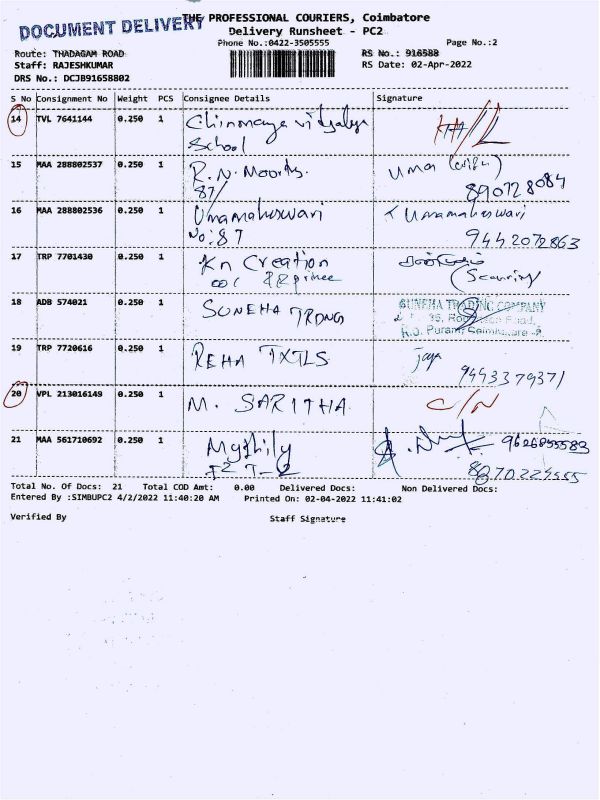 DOCUMENT DELIVERY
THE PROFESSIONAL COURIERS, Coimbatore
Delivery Runsheet - PC2
Phone No.:0422-3505555
Page No.:2
Route: THADAGAM ROAD
RS No.: 916588
Staff: RAJESHKUMAR
RS Date: 02-Apr-2022
DRS No.: DCJB91658802
S No Consignment No Weight PCS Consignee Details Signature
14 TVL 7641144 0.250 1 Chinmaya vidyalya
School
15 MAA 288802537 0.250 1 R.N. Moorthy Uma
87/ 890728084
16 MAA 288802536 0.250 1 Umamaheswari Umamaheswari
No: 87 9442072863
17 TRP 7701430 0.250 1 Kn Creation
(Security)
18 ADB 574021 0.250 1 SUNEHA TRDNG SUNEHA TRADING COMPANY
R.S. Puram, Coimbatore-2
19 TRP 7720616 0.250 1 REHA TXTLS Jaya
9443379371
20 VPL 213016149 0.250 1 M. SARITHA C/N
21 MAA 561710692 0.250 1 Mythily 9626855583
F2 T-2 8070229555
Total No. Of Docs: 21 Total COD Amt: 0.00 Delivered Docs: Non Delivered Docs:
Entered By :SIMBUPC2 4/2/2022 11:40:20 AM Printed On: 02-04-2022 11:41:02
Verified By Staff Signature